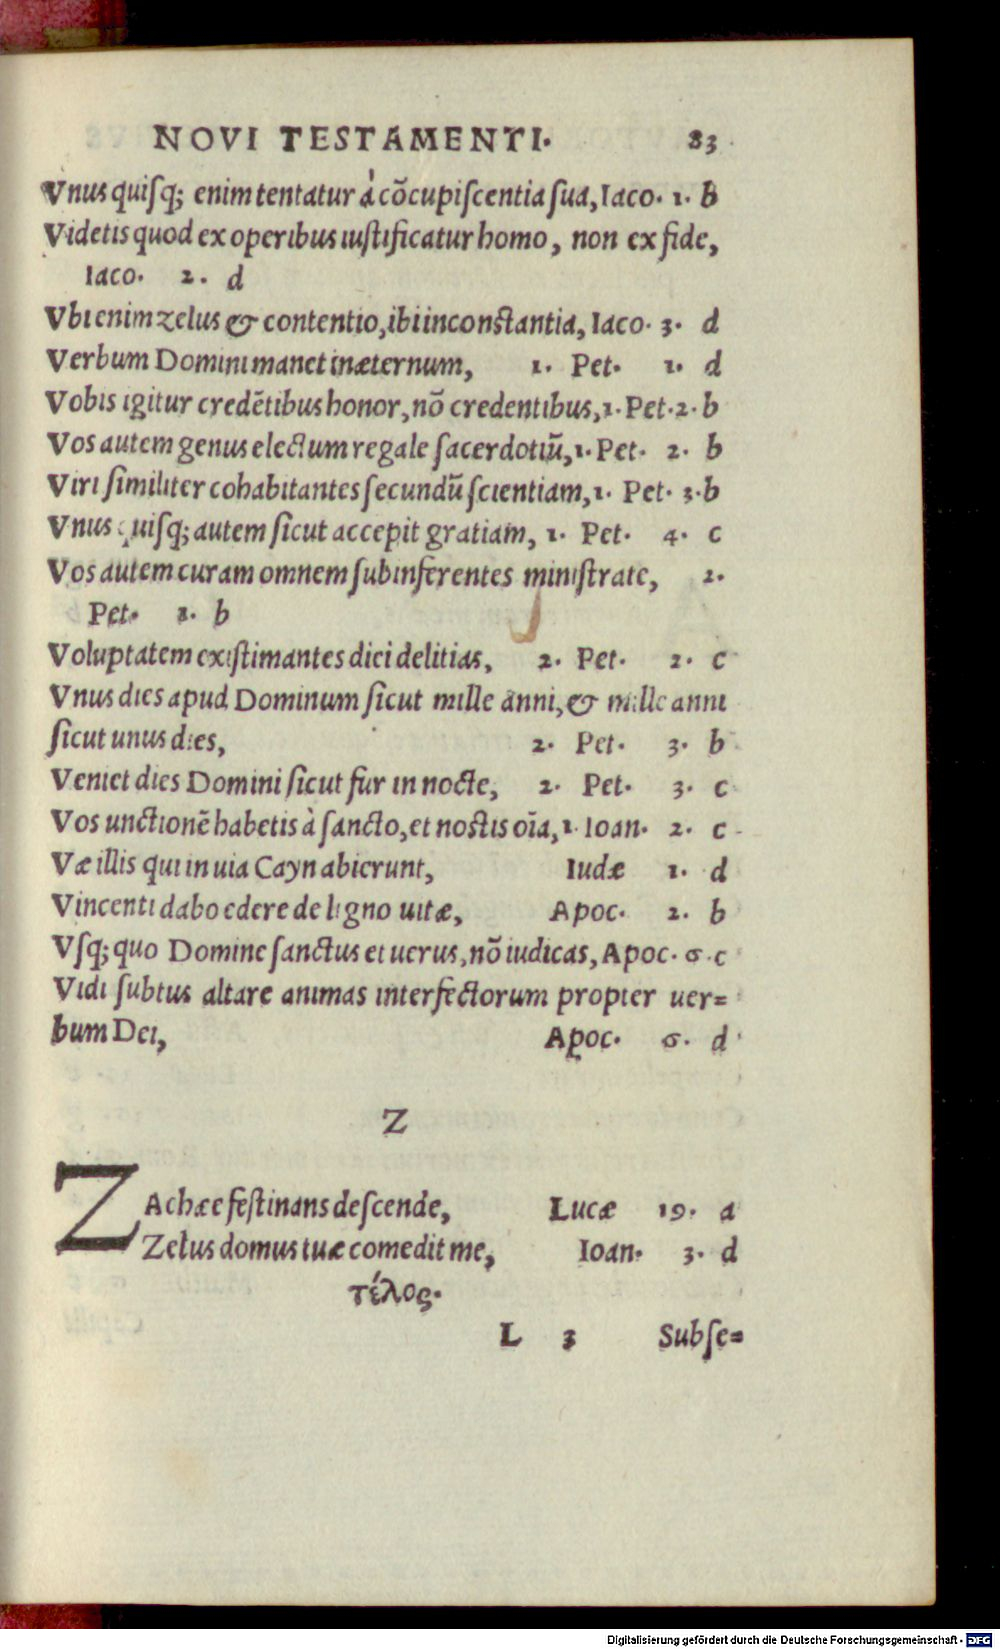 NOVI TESTAMENTI. 83
Vnus quiſq; enim tentatur à cōcupiſcentia ſua, Iaco. 1. b
Videtis quod ex operibus iuſtificatur homo, non ex fide,
Iaco. 2. d
Vbi enim zelus & contentio, ibi inconſtantia, Iaco. 3. d
Verbum Domini manet inæternum, 1. Pet. 1. d
Vobis igitur credētibus honor, nō credentibus, 1. Pet. 2. b
Vos autem genus electum regale ſacerdotiū, 1. Pet. 2. b
Viri ſimiliter cohabitantes ſecundū ſcientiam, 1. Pet. 3. b
Vnus quiſq; autem ſicut accepit gratiam, 1. Pet. 4. c
Vos autem curam omnem ſubinferentes miniſtrate, 2.
Pet. 1. b
Voluptatem exiſtimantes diei delitias, 2. Pet. 2. c
Vnus dies apud Dominum ſicut mille anni, & mille anni
ſicut unus dies, 2. Pet. 3. b
Veniet dies Domini ſicut fur in nocte, 2. Pet. 3. c
Vos unctionē habetis à ſancto, et noſtis oīa, 1. Ioan. 2. c
Væ illis qui in uia Cayn abierunt, Iudæ 1. d
Vincenti dabo edere de ligno uitæ, Apoc. 2. b
Vſq; quo Domine ſanctus et uerus, nō iudicas, Apoc. 6. c
Vidi ſubtus altare animas interfectorum propter uer=
bum Dei, Apoc. 6. d
Z
ZAchæe feſtinans deſcende, Lucæ 19. a
Zelus domus tuæ comedit me, Ioan. 3. d
τέλος.
L 3 Subſe=
Digitalisierung gefördert durch die Deutsche Forschungsgemeinschaft - DFG